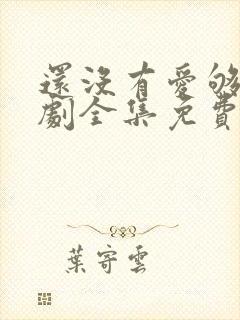 還沒有愛够
劇全集免費
葉寄雲